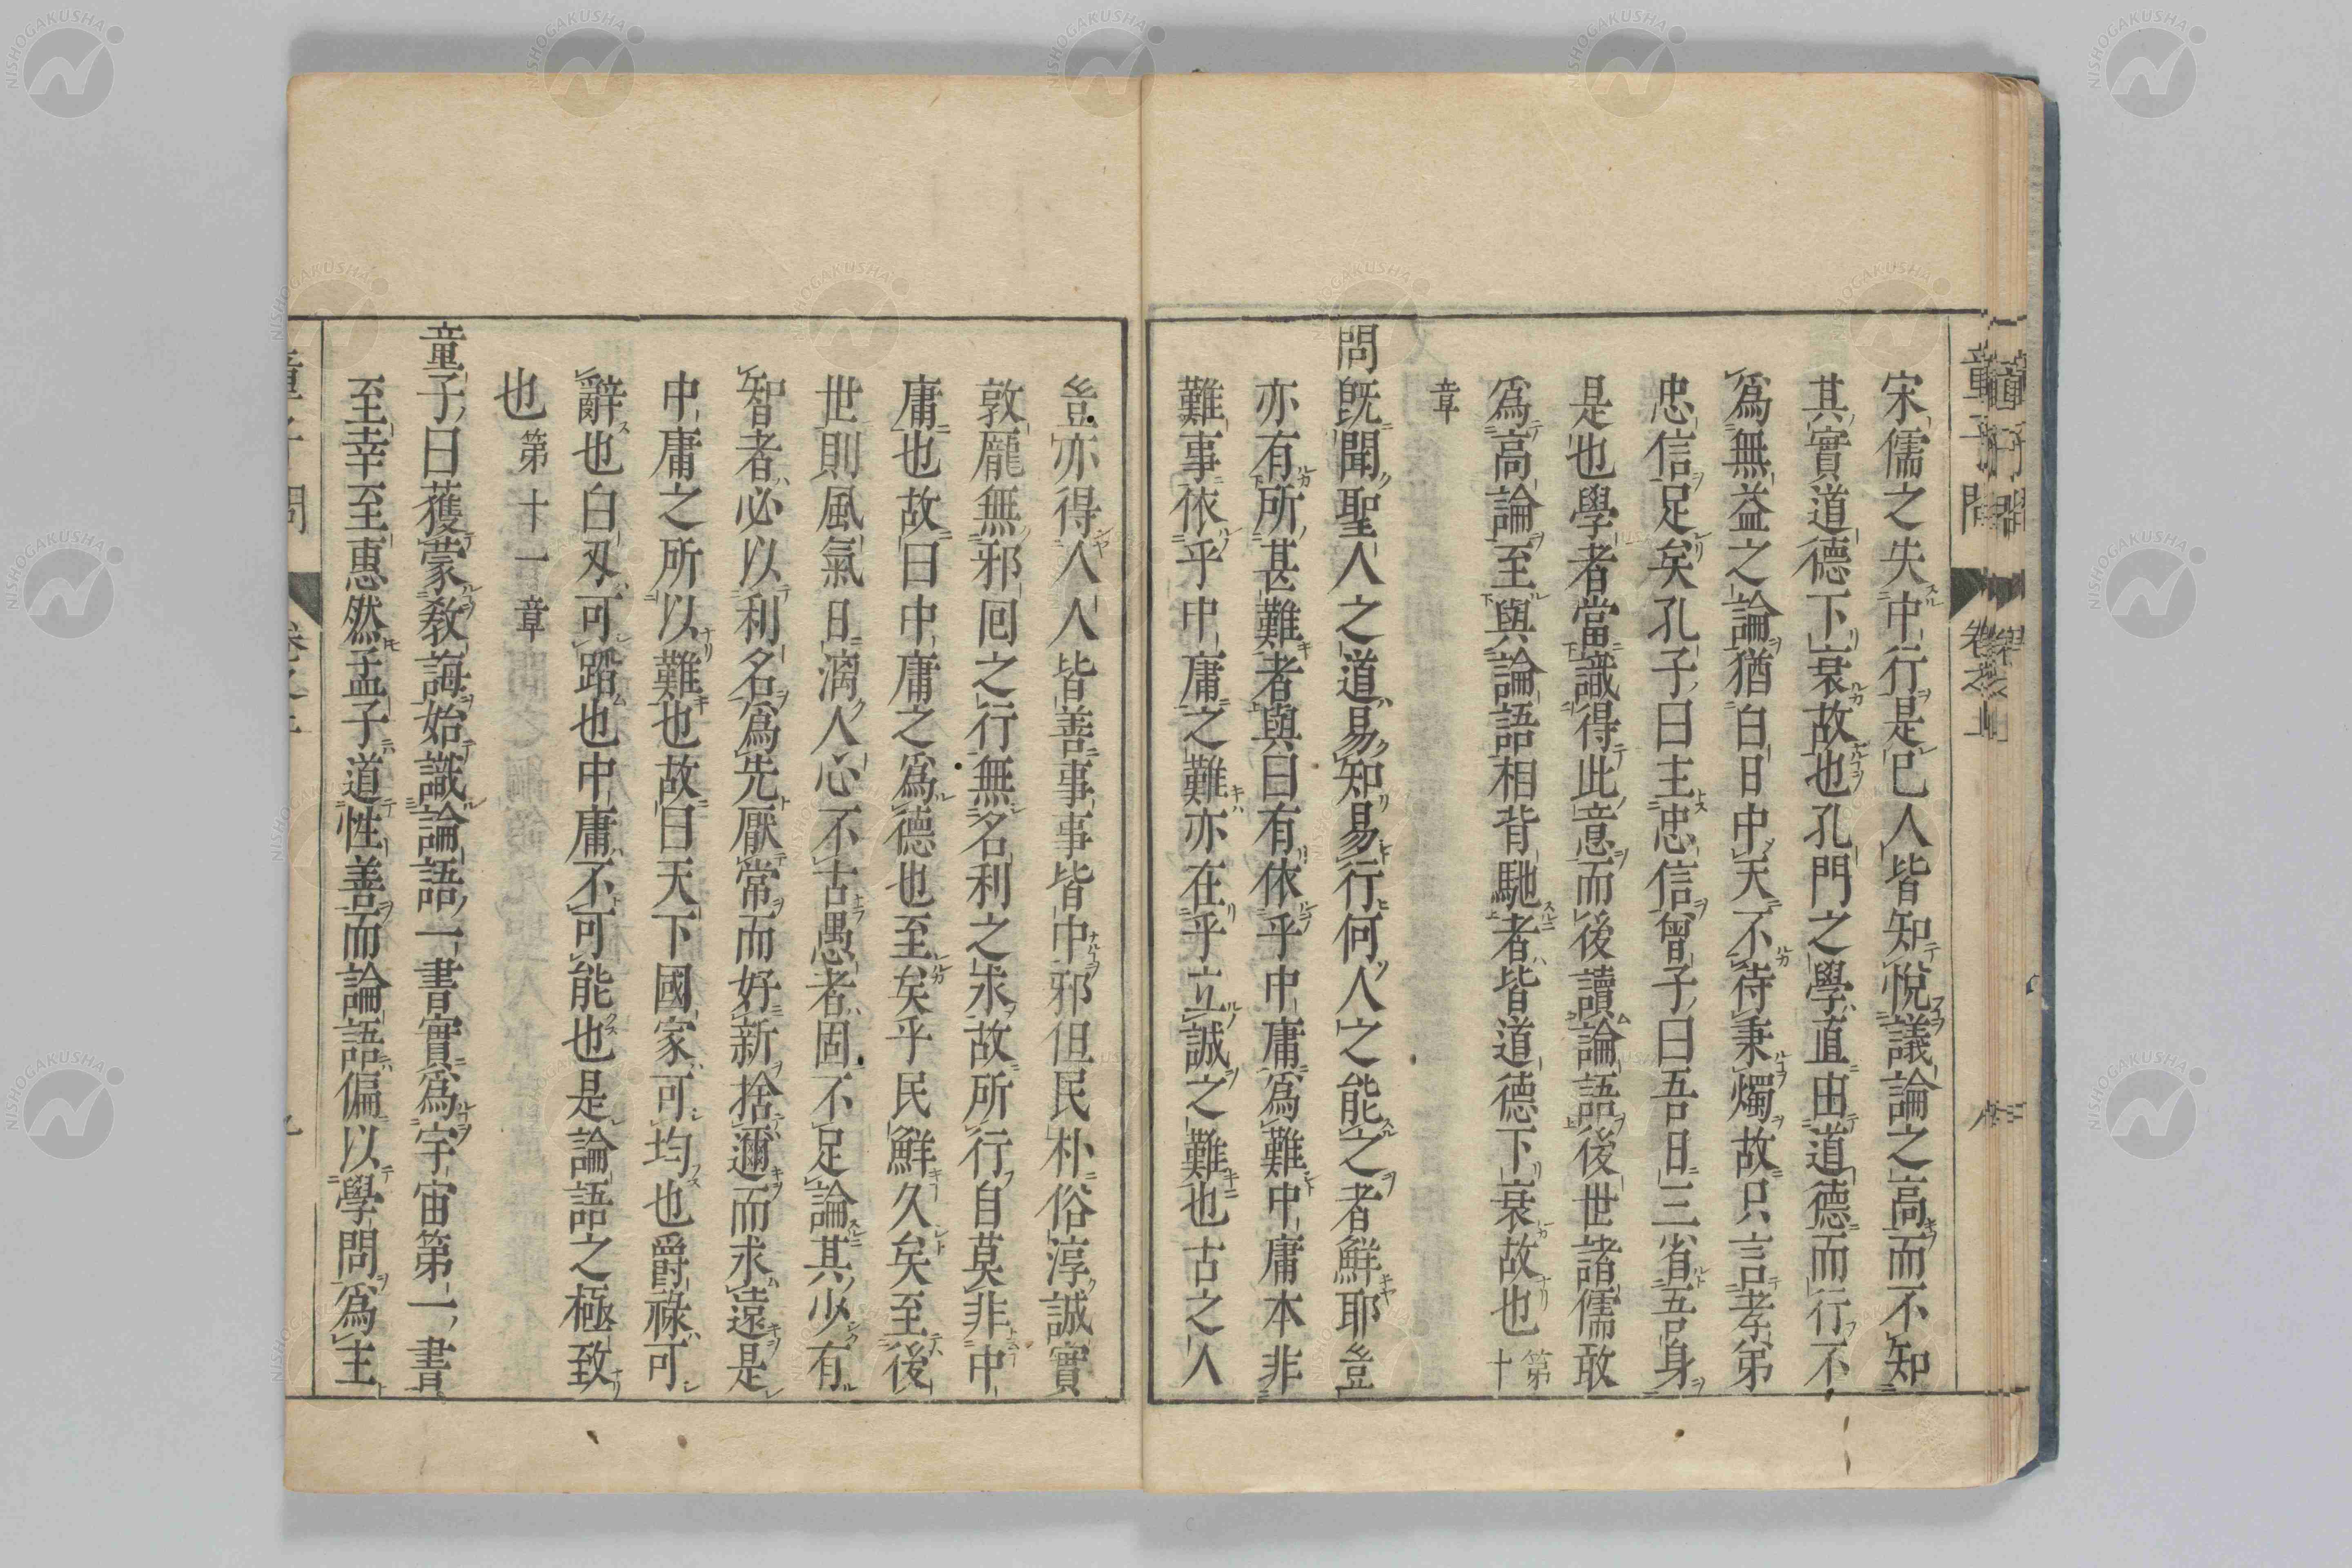 宋儒之失中行是已人皆知悅議論之高而不知
其實道德下衰故也孔門之學直由道德而行不
爲無益之論猶白日中天不待秉燭故只言孝弟
忠信足矣孔子曰主忠信曾子曰吾日三省吾身
是也學者當識得此意而後讀論語後世諸儒敢
爲高論至與論語相背馳者皆道德下衰故也第十
章
問旣聞聖人之道易知易行何人之能之者鮮耶豈
亦有所甚難者與曰有依乎中庸爲難中庸本非
難事依乎中庸之難亦在乎立誠之難也古之人
豈亦得人人皆善事事皆中邪但民朴俗淳誠實
敦龐無邪回之行無名利之求故所行自莫非中
庸也故曰中庸之爲德也至矣乎民鮮久矣至後
世則風氣日漓人心不古愚者固不足論其少有
智者必以利名爲先厭常而好新捨邇而求遠是
中庸之所以難也故曰天下國家可均也爵祿可
辭也白刄可蹈也中庸不可能也是論語之極致
也第十一章
童子曰獲蒙敎誨始識論語一書實爲宇宙第一書
至幸至惠然孟子道性善而論語偏以學問爲主
童子問
卷之上
八
NISHOGAKUSHA